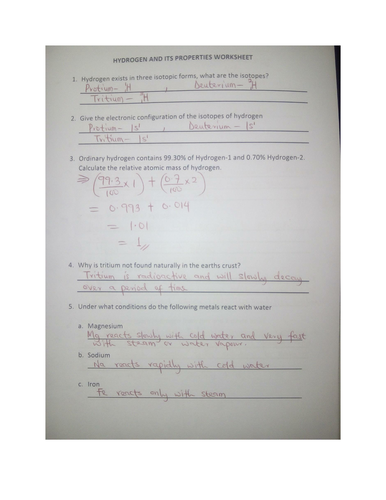 HYDROGEN AND ITS PROPERTIES WORKSHEET
1. Hydrogen exists in three isotopic forms, what are the isotopes?
Protium – ¹H , Deuterium – ²H
Tritium – ³H
2. Give the electronic configuration of the isotopes of hydrogen
Protium – 1s¹ , Deuterium – 1s¹
Tritium – 1s¹
3. Ordinary hydrogen contains 99.30% of Hydrogen-1 and 0.70% Hydrogen-2.
Calculate the relative atomic mass of hydrogen.
⇒ (99.3/100 × 1) + (0.7/100 × 2)
= 0.993 + 0.014
= 1.01
= 1//
4. Why is tritium not found naturally in the earths crust?
Tritium is radioactive and will slowly decay
over a period of time.
5. Under what conditions do the following metals react with water
a. Magnesium
Mg reacts slowly with cold water and very fast
with steam or water vapour.
b. Sodium
Na reacts rapidly with cold water
c. Iron
Fe reacts only with steam